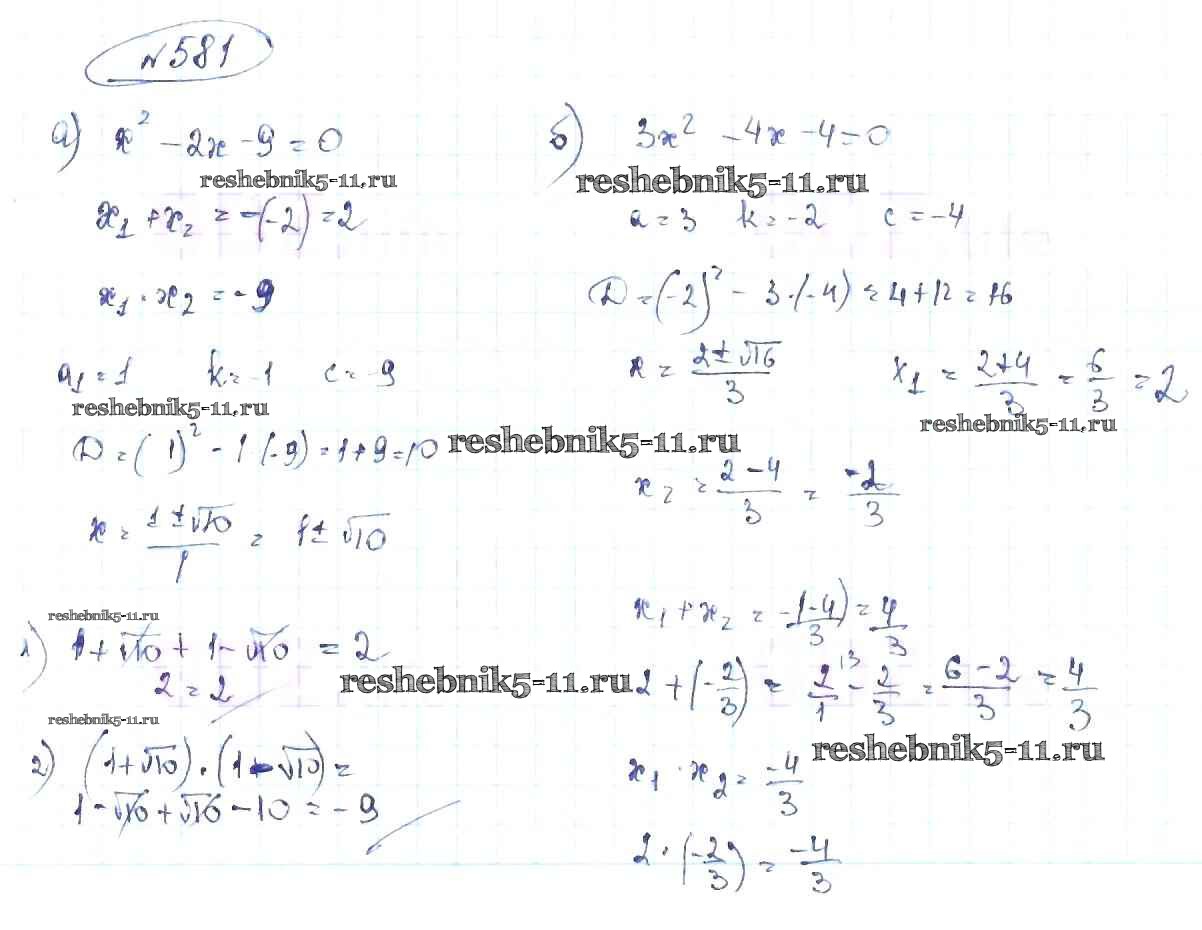 №581
а) x² - 2x - 9 = 0
reshebnik5-11.ru
x₁ + x₂ = -(-2) = 2
x₁ · x₂ = -9
a₁ = 1 k = -1 c = -9
reshebnik5-11.ru
D = ( 1)² - 1 (-9) = 1 + 9 = 10
reshebnik5-11.ru
x = (1 ± √10)/1 = 1 ± √10
reshebnik5-11.ru
1) 1 + √10 + 1 - √10 = 2
2 = 2
reshebnik5-11.ru
reshebnik5-11.ru
2) (1 + √10) · (1 - √10) =
1 - √10 + √10 - 10 = -9
б) 3x² - 4x - 4 = 0
reshebnik5-11.ru
a = 3 k = -2 c = -4
D = (-2)² - 3·(-4) = 4 + 12 = 16
x = (2 ± √16)/3 x₁ = (2+4)/3 = 6/3 = 2
reshebnik5-11.ru
x₂ = (2 - 4)/3 = -2/3
x₁ + x₂ = -(-4)/3 = 4/3
2 + (-2/3) = 2/1 \3 - 2/3 = (6 - 2)/3 = 4/3
reshebnik5-11.ru
x₁ · x₂ = -4/3
2 · (-2/3) = -4/3